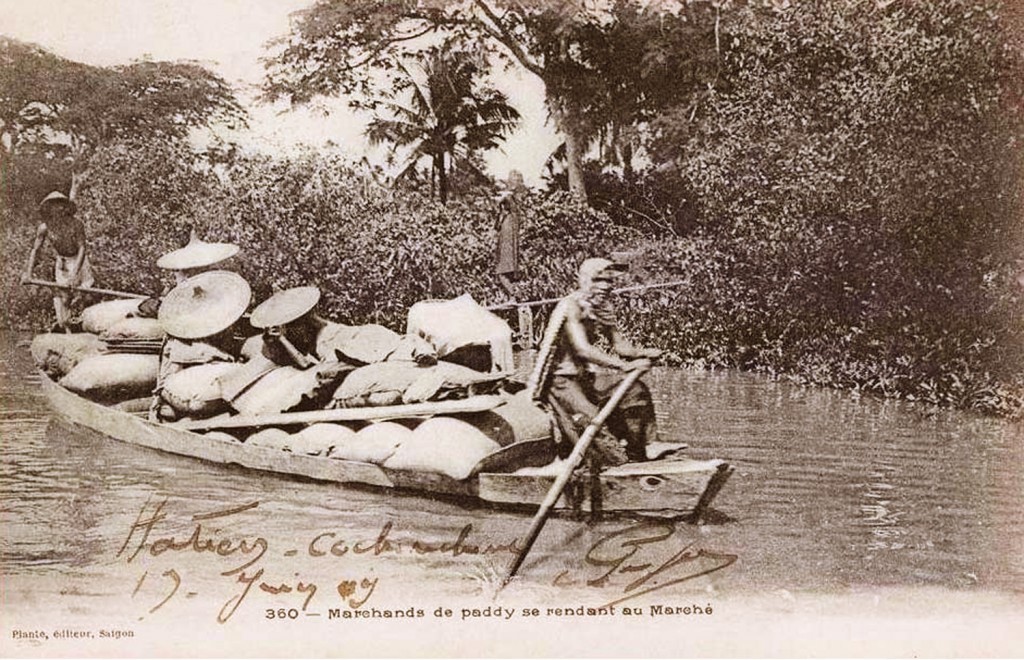 Hatien - Cochinchine
17 - Juin 09
360 — Marchands de paddy se rendant au Marché
Planté, éditeur, Saigon